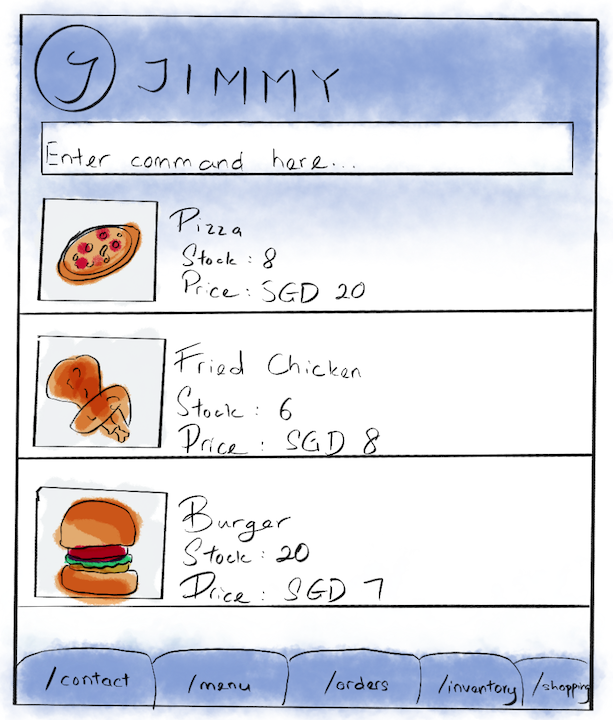 J JIMMY
Enter command here...
Pizza
Stock: 8
Price: SGD 20
Fried Chicken
Stock: 6
Price: SGD 8
Burger
Stock: 20
Price: SGD 7
/contact /menu /orders /inventory /shopping